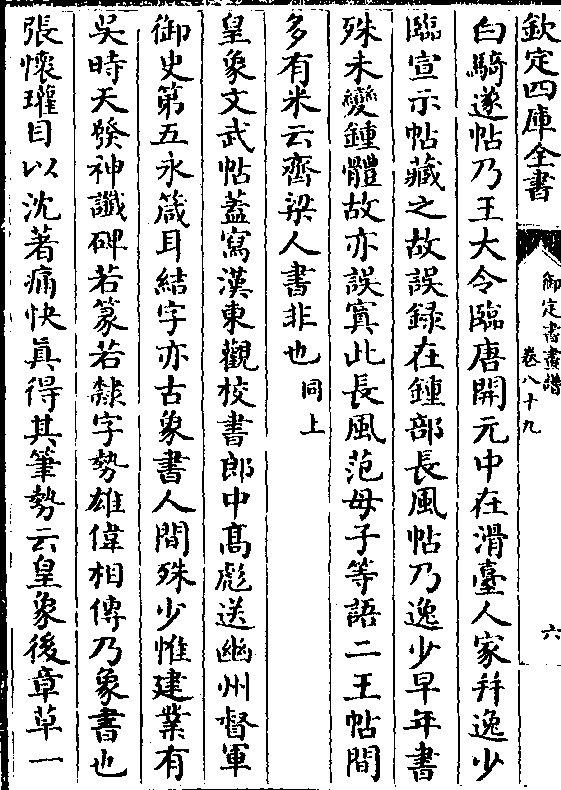 欽定四庫全書
御定書畫譜
卷八十九
六
白騎遂帖乃王大令臨唐開元中在滑臺人家并逸少
臨宣示帖藏之故誤録在鍾部長風帖乃逸少早年書
殊未變鍾體故亦誤寘此長風范母子等語二王帖間
多有米云齊梁人書非也同上
皇象文武帖葢寫漢東觀校書郎中髙彪送幽州督軍
御史第五永箴耳結字亦古象書人間殊少惟建業有
吳時天發神讖碑若篆若隸字勢雄偉相傳乃象書也
張懷瓘目以沈著痛快真得其筆勢云皇象後章草一